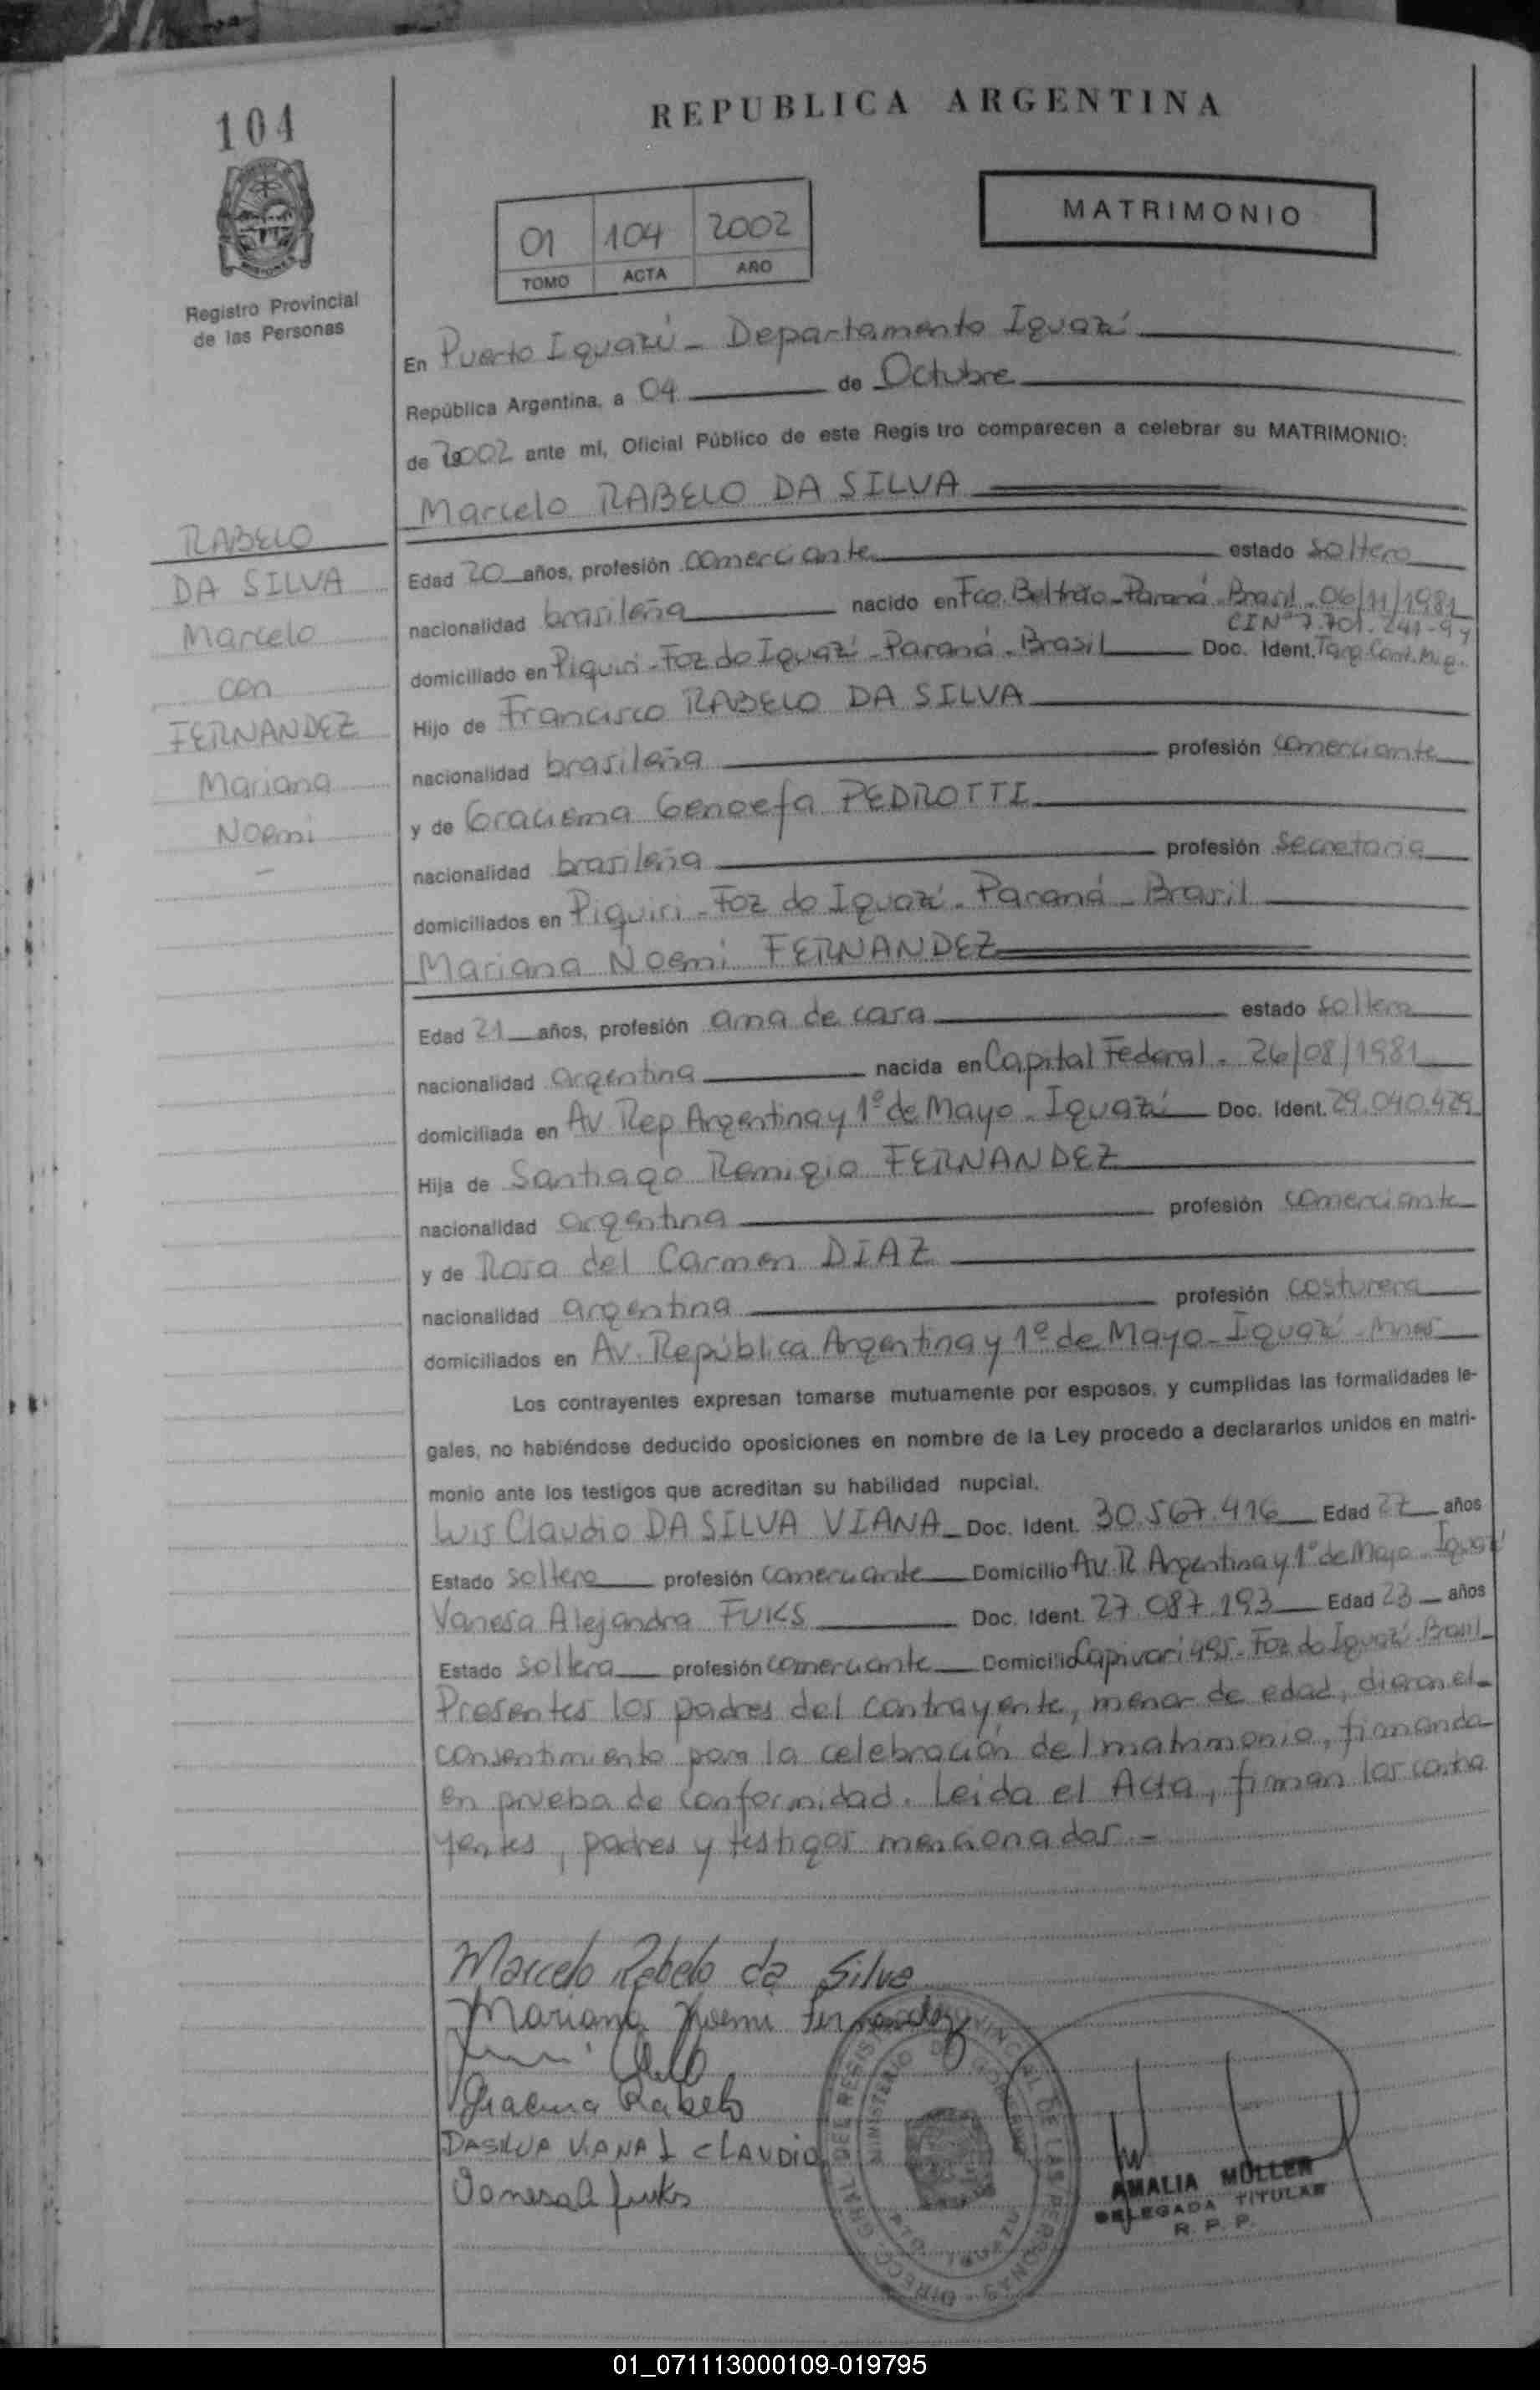 104
REPUBLICA ARGENTINA
MATRIMONIO
01 104 2002
TOMO ACTA AÑO
Registro Provincial
de las Personas
En Puerto Iguazú - Departamento Iguazú
República Argentina, a 04 de Octubre
de 2002 ante mi, Oficial Público de este Registro comparecen a celebrar su MATRIMONIO:
Marcelo RABELO DA SILVA
RABELO
DA SILVA
Marcelo
con
FERNANDEZ
Mariana
Noemi
Edad 20 años, profesión comerciante estado soltero
nacionalidad brasileña nacido en Fco. Beltrão - Paraná - Brasil - 06/11/1981
CI Nº 7.701.241-9 y
domiciliado en Piquiri - Foz do Iguazú - Paraná - Brasil Doc. Ident. Tarj. Cont. Mig.
Hijo de Francisco RABELO DA SILVA
nacionalidad brasileña profesión comerciante
y de Graciema Genoefa PEDROTTI
nacionalidad brasileña profesión secretaria
domiciliados en Piquiri - Foz do Iguazú - Paraná - Brasil
Mariana Noemi FERNANDEZ
Edad 21 años, profesión ama de casa estado soltera
nacionalidad argentina nacida en Capital Federal - 26/08/1981
domiciliada en Av Rep Argentina y 1º de Mayo - Iguazú Doc. Ident. 29.040.429
Hija de Santiago Remigio FERNANDEZ
nacionalidad argentina profesión comerciante
y de Rosa del Carmen DIAZ
nacionalidad argentina profesión costurera
domiciliados en Av. República Argentina y 1º de Mayo - Iguazú - Mnes
Los contrayentes expresan tomarse mutuamente por esposos, y cumplidas las formalidades le-
gales, no habiéndose deducido oposiciones en nombre de la Ley procedo a declararlos unidos en matri-
monio ante los testigos que acreditan su habilidad nupcial.
Luis Claudio DA SILVA VIANA - Doc. Ident. 30.567.416 Edad 27 años
Estado soltero profesión comerciante Domicilio Av. R. Argentina y 1º de Mayo Iguazú
Vanesa Alejandra FUKS Doc. Ident. 27.087.193 Edad 23 años
Estado soltera profesión comerciante Domicilio Capivari 495 - Foz do Iguazú - Brasil
Presentes los padres del contrayente, menor de edad, dieron el
consentimiento para la celebración del matrimonio, firmando
en prueba de conformidad. Leida el Acta, firman los contra
yentes, padres y testigos mencionados.-
Marcelo Rabelo da Silva
Mariana Noemi Fernandez
Graciema Rabelo
DA SILVA VIANA L CLAUDIO
Vanesa A fuks
DIRECC. GRAL. DEL REGISTRO PROVINCIAL DE LAS PERSONAS
MINISTERIO DE GOBIERNO
PTO. IGUAZU
AMALIA MÜLLER
DELEGADA TITULAR
R. P. P.
01_071113000109-019795